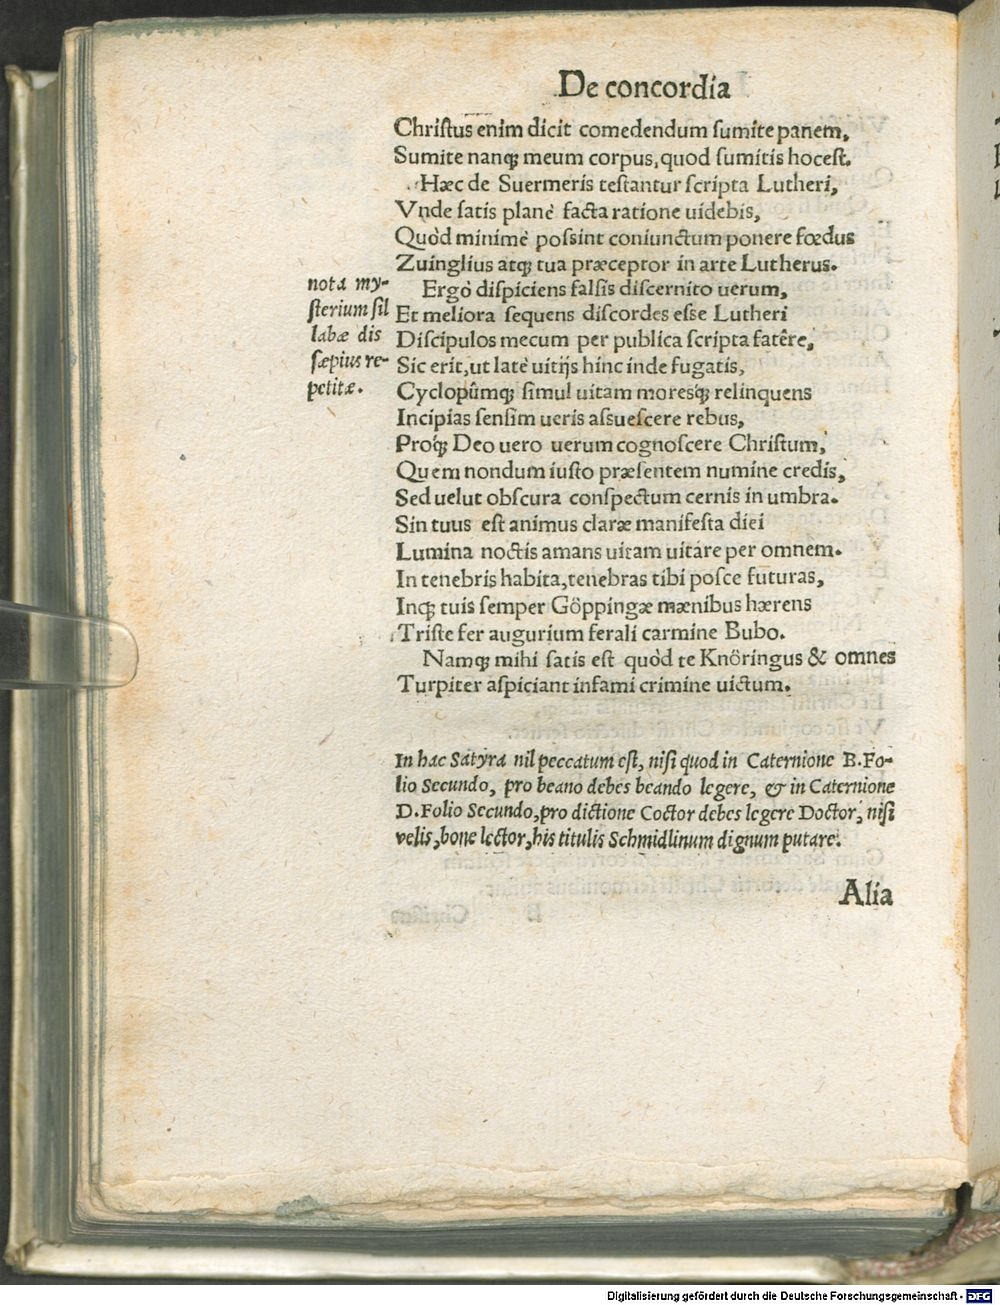 De concordia
Christus enim dicit comedendum sumite panem,
Sumite nanq; meum corpus, quod sumitis hoc est.
Hæc de Suermeris testantur scripta Lutheri,
Vnde satis planè facta ratione uidebis,
Quòd minimè possint coniunctum ponere fœdus
Zuinglius atq; tua præceptor in arte Lutherus.
Ergò dispiciens falsis discernito uerum,
Et meliora sequens discordes esse Lutheri
Discipulos mecum per publica scripta fatêre,
Sic erit, ut latè uitijs hinc inde fugatis,
Cyclopûmq; simul uitam moresq́; relinquens
Incipias sensim ueris assuescere rebus,
Proq́; Deo uero uerum cognoscere Christum,
Quem nondum iusto præsentem numine credis,
Sed uelut obscura conspectum cernis in umbra.
Sin tuus est animus claræ manifesta diei
Lumina noctis amans uitam uitare per omnem.
In tenebris habita, tenebras tibi posce futuras,
Inq; tuis semper Göppingæ mænibus hærens
Triste fer augurium ferali carmine Bubo.
Namq; mihi satis est quòd te Knöringus & omnes
Turpiter aspiciant infami crimine uictum.
nota my-
sterium sil
labæ dis
sæpius re-
petitæ.
In hac Satyra nil peccatum est, nisi quod in Caternione B. Fo-
lio Secundo, pro beano debes beando legere, & in Caternione
D. Folio Secundo, pro dictione Coctor debes legere Doctor, nisi
velis, bone lector, his titulis Schmidlinum dignum putare.
Alia
Digitalisierung gefördert durch die Deutsche Forschungsgemeinschaft - DFG